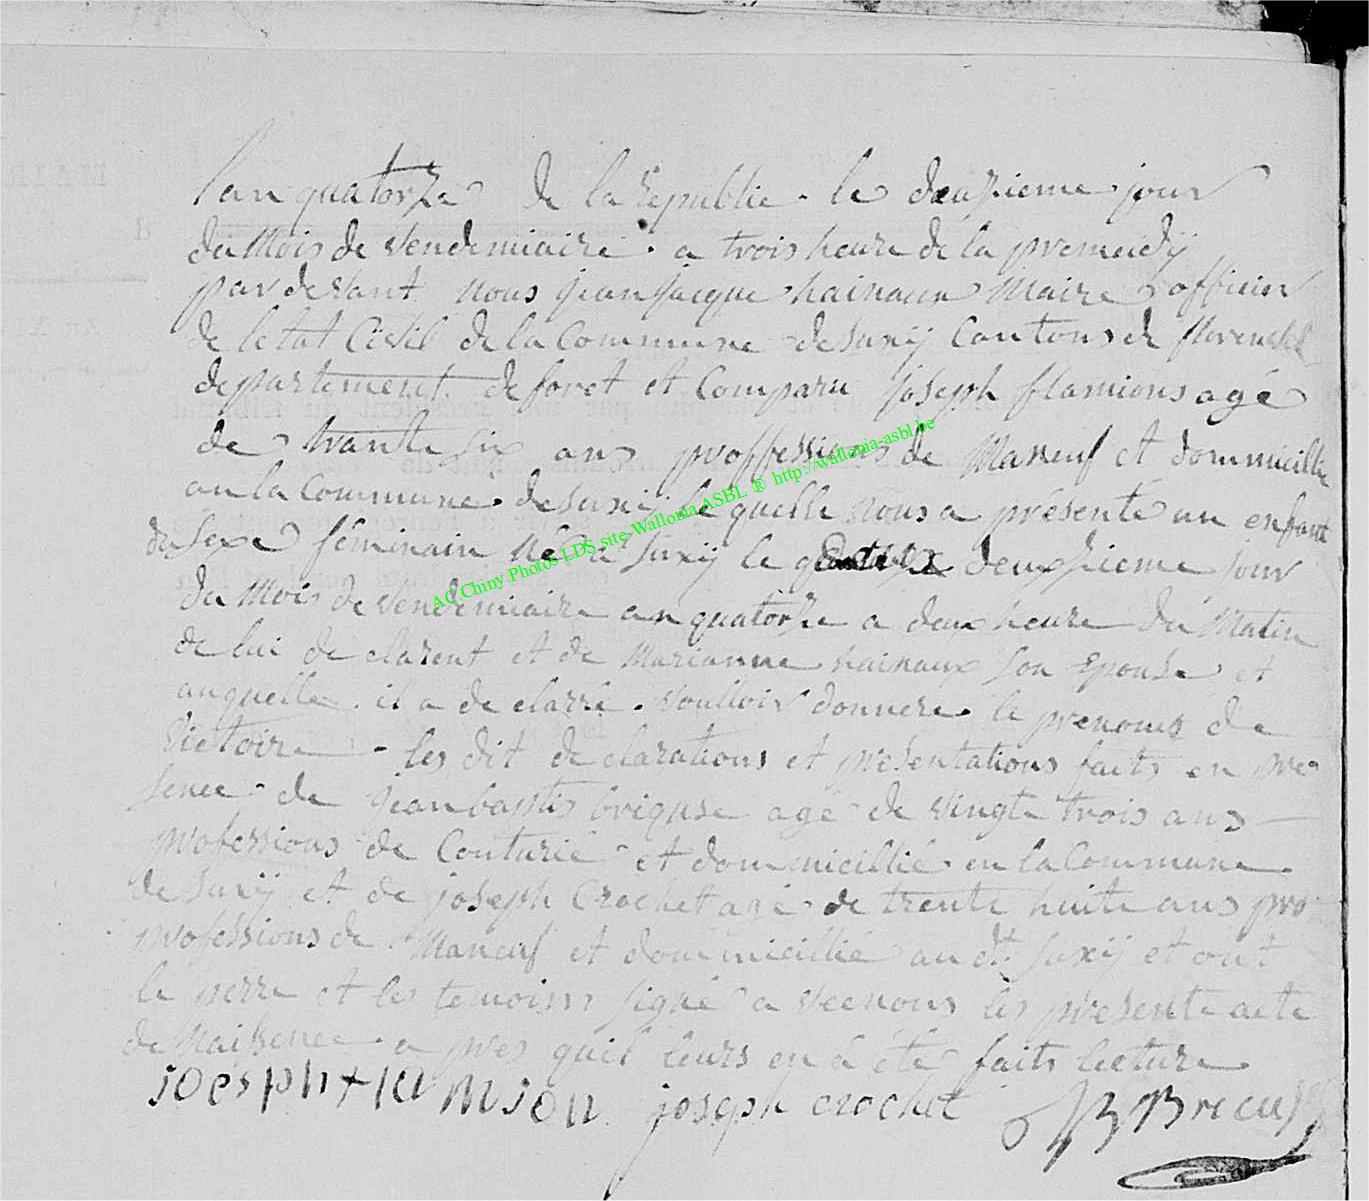 l'an quatorze de la republic . le deuxieme jour
du Mois de Vendemiaire . a trois heure de la premiedÿ
pardevant nous jean jacque hainaux Maire officier
de letat Civil de la Commune de Suxÿ Cantons de florenville
departement de foret et Comparu joseph flamions agé
de trante six ans proffessions de Maneuf et dommicillie
an la Commune de Suxÿ le quelle nous a présenté un enfant
du Sexe féminain Né a Suxÿ le deuxieme jour
du Mois de Vendemiaire an quatorze a deux heure du Matin
de lui declarent et de Marianne hainaux Son Epouse et
auquelle . il a declarré . voulloir donnere le prenoms de
Victoire - les dit declarations et presentations faits en pre
sence de jeanbaptis briquse agé de vingte trois ans
professions de Couturié et dommicillié en la Commune
de Suxÿ et de joseph Crochet agé de trente huite ans pro
professions de Maneuf et dommicillié au dt. Suxÿ et ont
le perre et les temoins signé avecnous les presente acte
de Naissence apres quil leurs en a été faits lecture
joesph flamion joseph crochet JB Bricus
AC Chiny Photos LDS site Wallonia ASBL ® http://wallonia-asbl.be